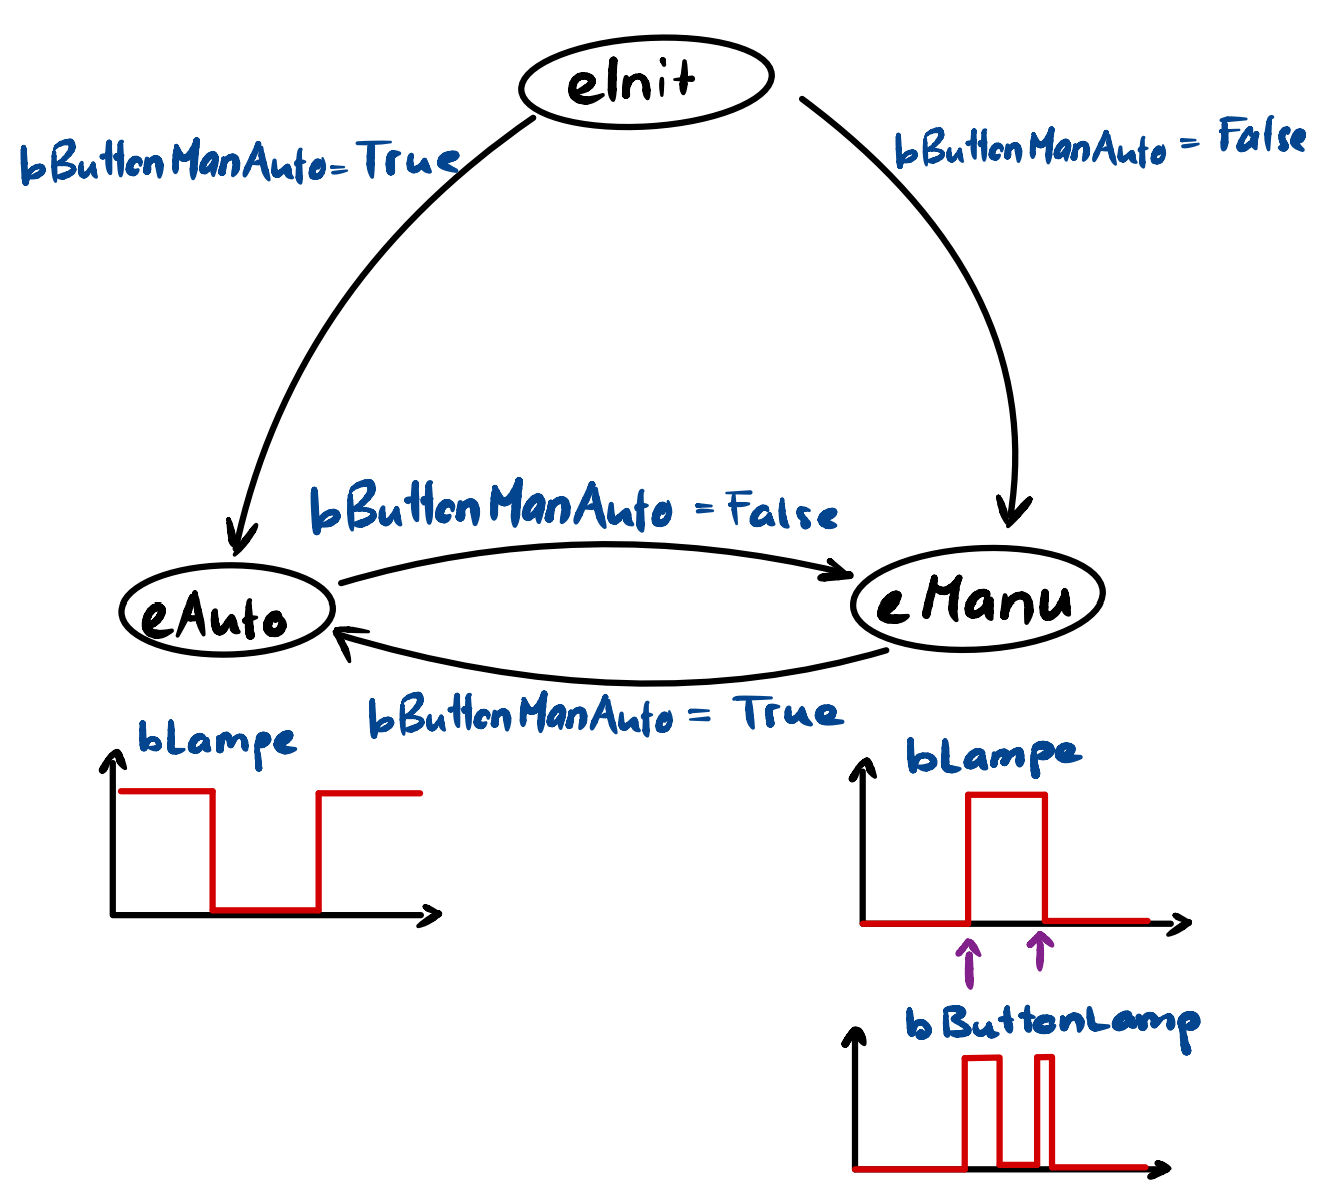 eInit
bButtonManAuto= True
bButtonManAuto = False
bButtonManAuto = False
eAuto
eManu
bButtonManAuto = True
bLampe
bLampe
bButtonLamp